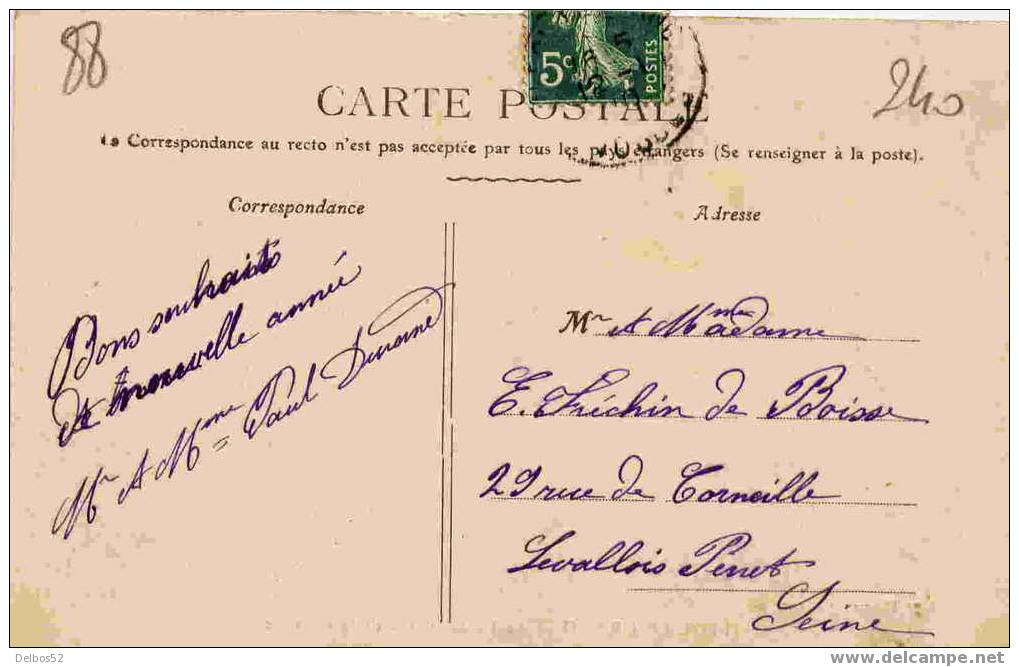 88
5c
POSTES
240
CARTE POSTALE
La Correspondance au recto n'est pas acceptée par tous les pays étrangers (Se renseigner à la poste).
Correspondance
Adresse
Bons souhaits
de nouvelle année
Mr & Mme Paul
Mr & Mme Madame
E. Fréchin de Boisse
29 rue de Corneille
Levallois Perret
Seine
Delbos52
www.delcampe.net